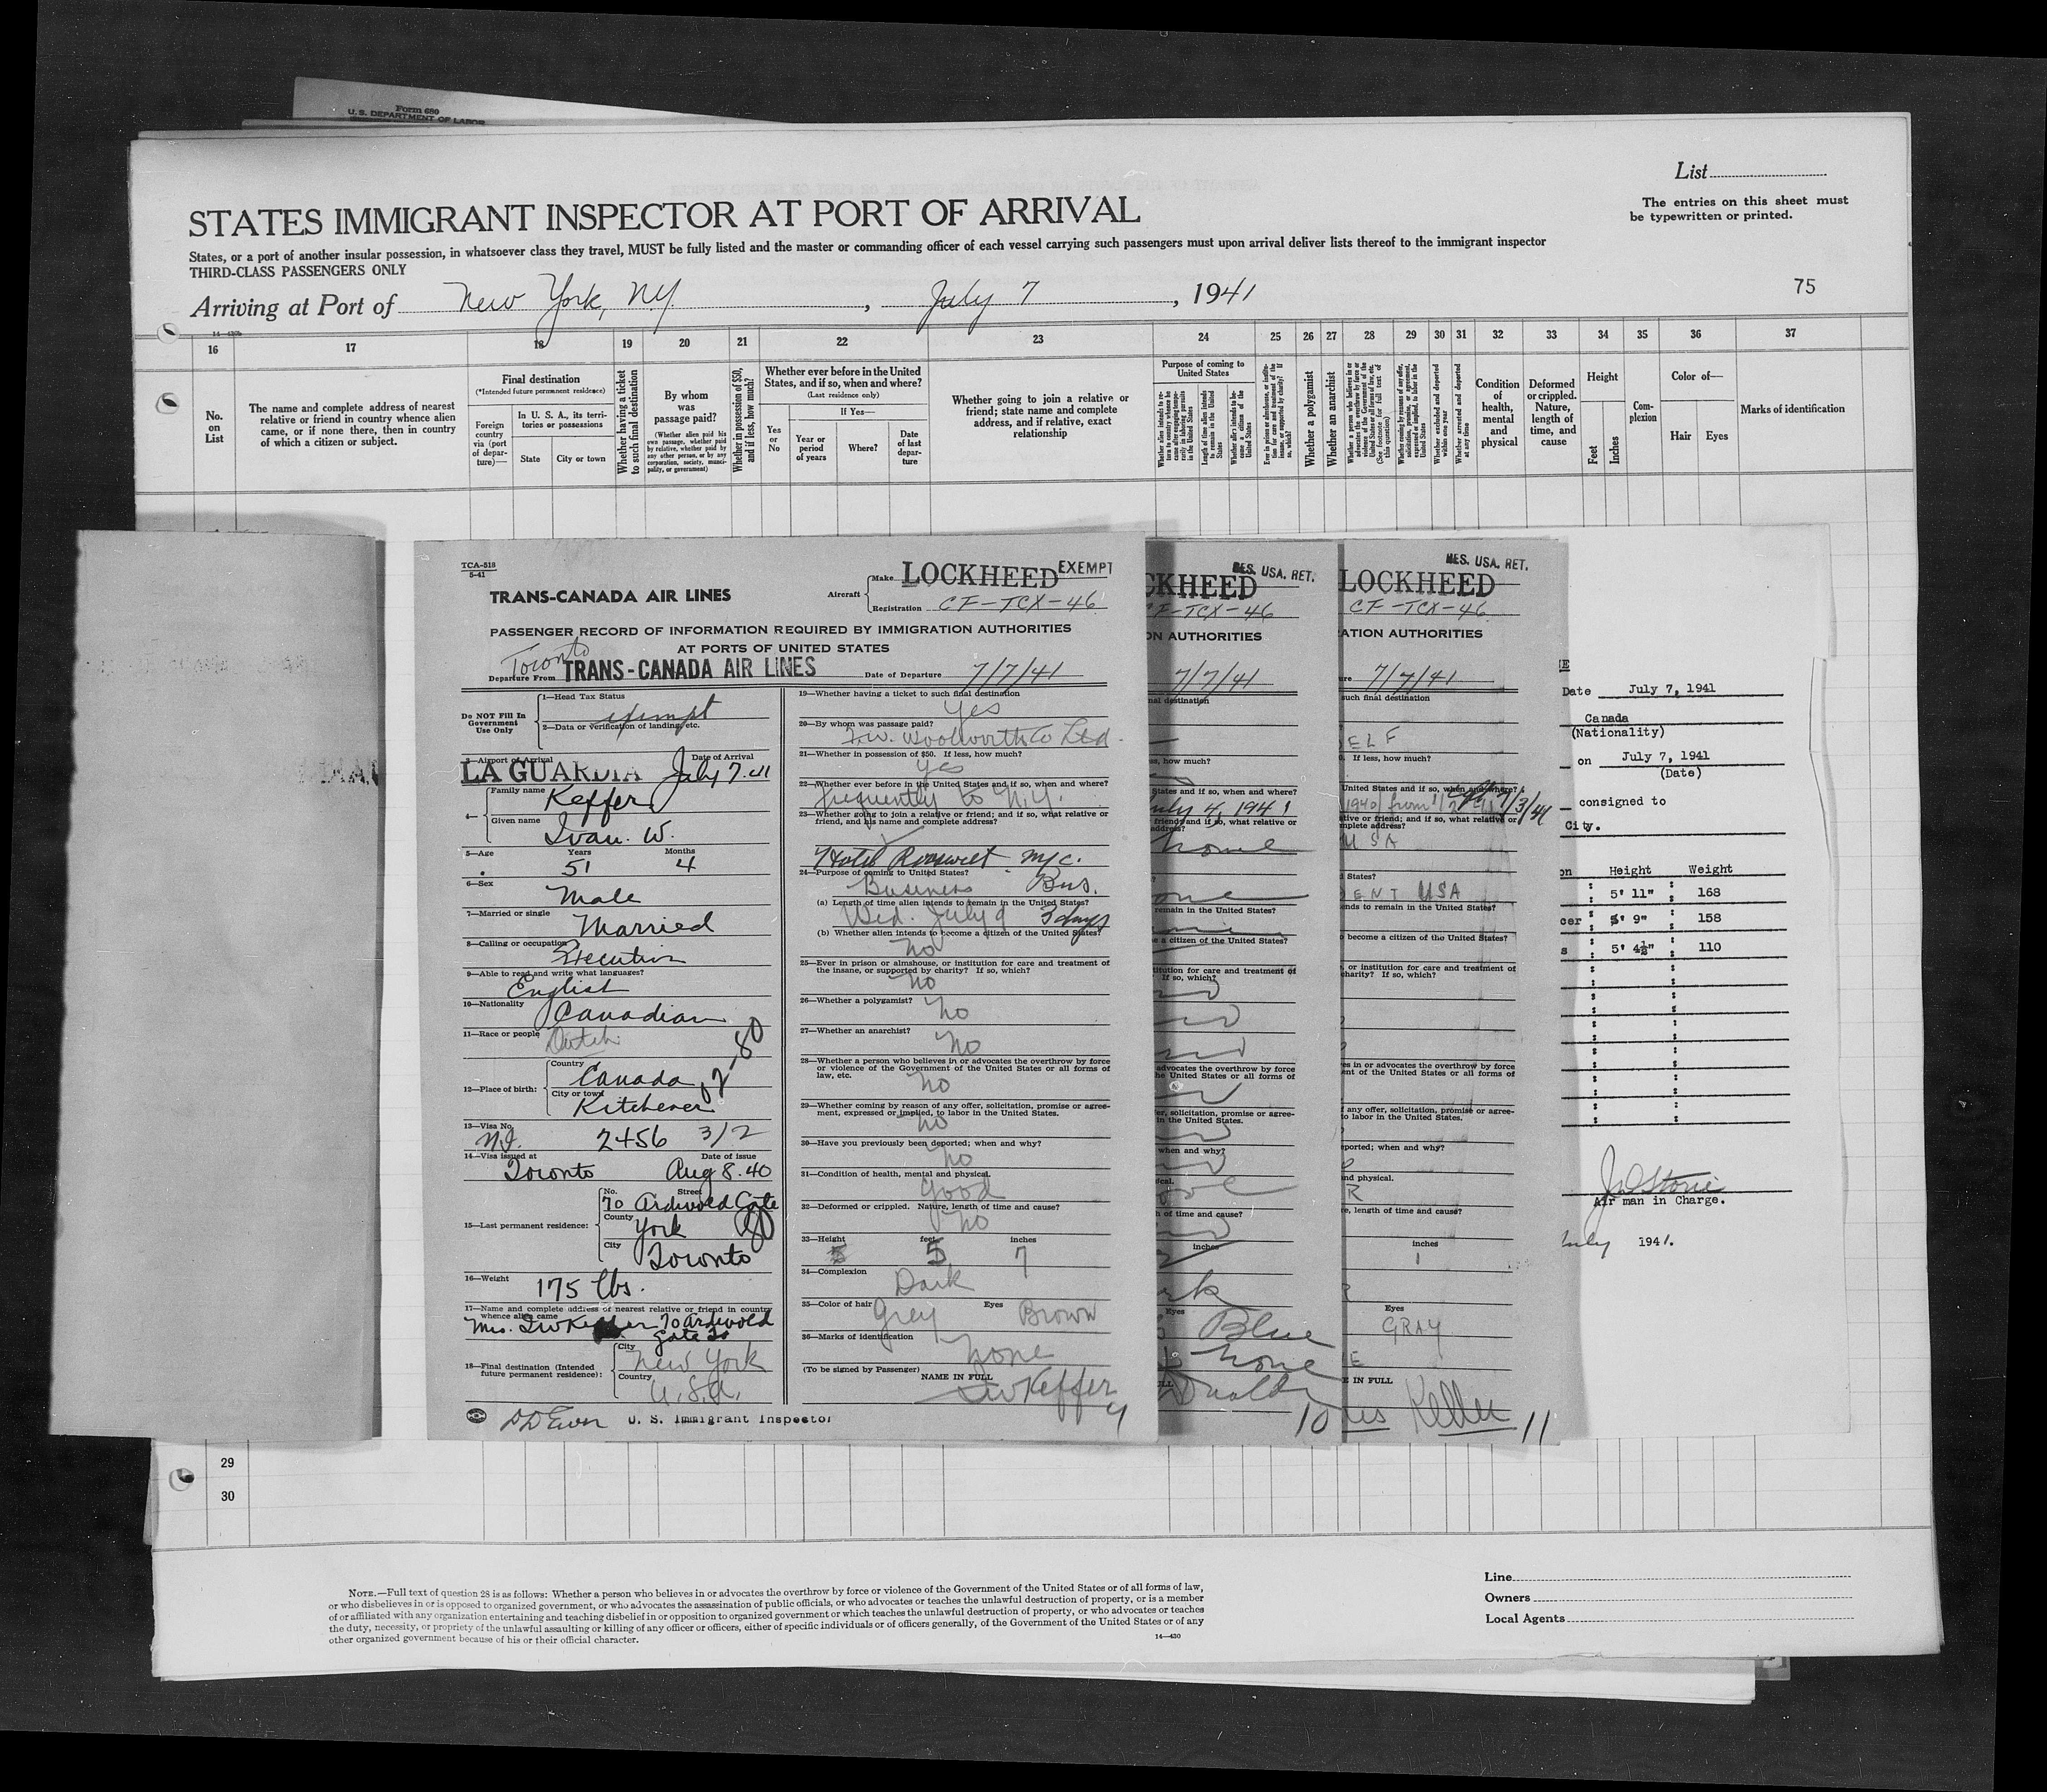 Form 680
U. S. DEPARTMENT OF LABOR
List
The entries on this sheet must
be typewritten or printed.
STATES IMMIGRANT INSPECTOR AT PORT OF ARRIVAL
States, or a port of another insular possession, in whatsoever class they travel, MUST be fully listed and the master or commanding officer of each vessel carrying such passengers must upon arrival deliver lists thereof to the immigrant inspector
THIRD-CLASS PASSENGERS ONLY
Arriving at Port of New York, N.Y. , July 7 , 1941
75
16 17 18 19 20 21 22 23 24 25 26 27 28 29 30 31 32 33 34 35 36 37
No. on List
The name and complete address of nearest
relative or friend in country whence alien
came, or if none there, then in country
of which a citizen or subject.
Final destination
(*Intended future permanent residence)
Foreign country via (port of departure)—
In U. S. A., its territories or possessions
State
City or town
Whether having a ticket to such final destination
By whom was passage paid?
(Whether alien paid his own passage, whether paid by relative, whether paid by any other person, or by any corporation, society, municipality, or government)
Whether in possession of $50, and if less, how much?
Whether ever before in the United States, and if so, when and where?
(Last residence only)
Yes or No
If Yes—
Year or period of years
Where?
Date of last departure
Whether going to join a relative or
friend; state name and complete
address, and if relative, exact
relationship
Purpose of coming to United States
Whether a polygamist
Whether an anarchist
Condition of health, mental and physical
Deformed or crippled. Nature, length of time, and cause
Height
Feet
Inches
Complexion
Color of—
Hair
Eyes
Marks of identification
TCA-518
5-41
TRANS-CANADA AIR LINES
Aircraft
Make LOCKHEED EXEMPT
Registration CF-TCX-46
PASSENGER RECORD OF INFORMATION REQUIRED BY IMMIGRATION AUTHORITIES
AT PORTS OF UNITED STATES
Toronto
Departure From TRANS-CANADA AIR LINES Date of Departure 7/7/41
Do NOT Fill In Government Use Only
1—Head Tax Status
exempt
2—Data or verification of landing, etc.
3—Airport of Arrival Date of Arrival
LA GUARDIA July 7.41
4— Family name Keffer
Given name Ivan. W.
5—Age Years 51 Months 4
6—Sex Male
7—Married or single Married
8—Calling or occupation Executive
9—Able to read and write what languages?
English
10—Nationality Canadian
11—Race or people Dutch
12—Place of birth: Country Canada
City or town Kitchener
13—Visa No. 2456 3/2
14—Visa issued at Toronto Date of issue Aug 8.40
15—Last permanent residence: No. 70 Street Ardwold Gate
County York
City Toronto
16—Weight 175 lbs.
17—Name and complete address of nearest relative or friend in country
whence alien came
Mrs. I W Keffer 70 Ardwold
Gate To
18—Final destination (Intended
future permanent residence): City New York
Country U.S.A.
U. S. Immigrant Inspector
19—Whether having a ticket to such final destination
Yes
20—By whom was passage paid?
F.W. Woolworth Co Ltd.
21—Whether in possession of $50. If less, how much?
Yes
22—Whether ever before in the United States and if so, when and where?
frequently to N.Y.
23—Whether going to join a relative or friend; and if so, what relative or
friend, and his name and complete address?
Hotel Roosevelt
24—Purpose of coming to United States?
Business Bus.
(a) Length of time alien intends to remain in the United States?
Wed. July 9 3 days
(b) Whether alien intends to become a citizen of the United States?
No
25—Ever in prison or almshouse, or institution for care and treatment of
the insane, or supported by charity? If so, which?
No
26—Whether a polygamist? No
27—Whether an anarchist? No
28—Whether a person who believes in or advocates the overthrow by force
or violence of the Government of the United States or all forms of
law, etc. No
29—Whether coming by reason of any offer, solicitation, promise or agree-
ment, expressed or implied, to labor in the United States.
No
30—Have you previously been deported; when and why?
No
31—Condition of health, mental and physical.
Good
32—Deformed or crippled. Nature, length of time and cause?
No
33—Height 5 feet 7 inches
34—Complexion Dark
35—Color of hair Grey Eyes Brown
36—Marks of identification
None
(To be signed by Passenger) NAME IN FULL
I W Keffer
9
RES. USA. RET.
CKHEED
CF-TCX-46
ON AUTHORITIES
7/7/41
July 4, 1941
home
Eyes
Blue
None
10
RES. USA. RET.
LOCKHEED
CF-TCX-46
ATION AUTHORITIES
7/7/41
such final destination
ELF
If less, how much?
United States and if so, when and where?
7/3/41
USA
States?
DENT USA
ends to remain in the United States?
become a citizen of the United States?
, or institution for care and treatment of
charity? If so, which?
any offer, solicitation, promise or agree-
to labor in the United States.
ported; when and why?
nd physical.
R
e, length of time and cause?
inches
1
Eyes
GRAY
E IN FULL
Keller
11
Date July 7, 1941
Canada
(Nationality)
on July 7, 1941
(Date)
consigned to
City.
Height Weight
5' 11" 168
cer 5' 9" 158
s 5' 4½" 110
Air man in Charge.
July 1941.
29
30
NOTE.—Full text of question 28 is as follows: Whether a person who believes in or advocates the overthrow by force or violence of the Government of the United States or of all forms of law,
or who disbelieves in or is opposed to organized government, or who advocates the assassination of public officials, or who advocates or teaches the unlawful destruction of property, or is a member
of or affiliated with any organization entertaining and teaching disbelief in or opposition to organized government or which teaches the unlawful destruction of property, or who advocates or teaches
the duty, necessity, or propriety of the unlawful assaulting or killing of any officer or officers, either of specific individuals or of officers generally, of the Government of the United States or of any
other organized government because of his or their official character.
14—430
Line
Owners
Local Agents